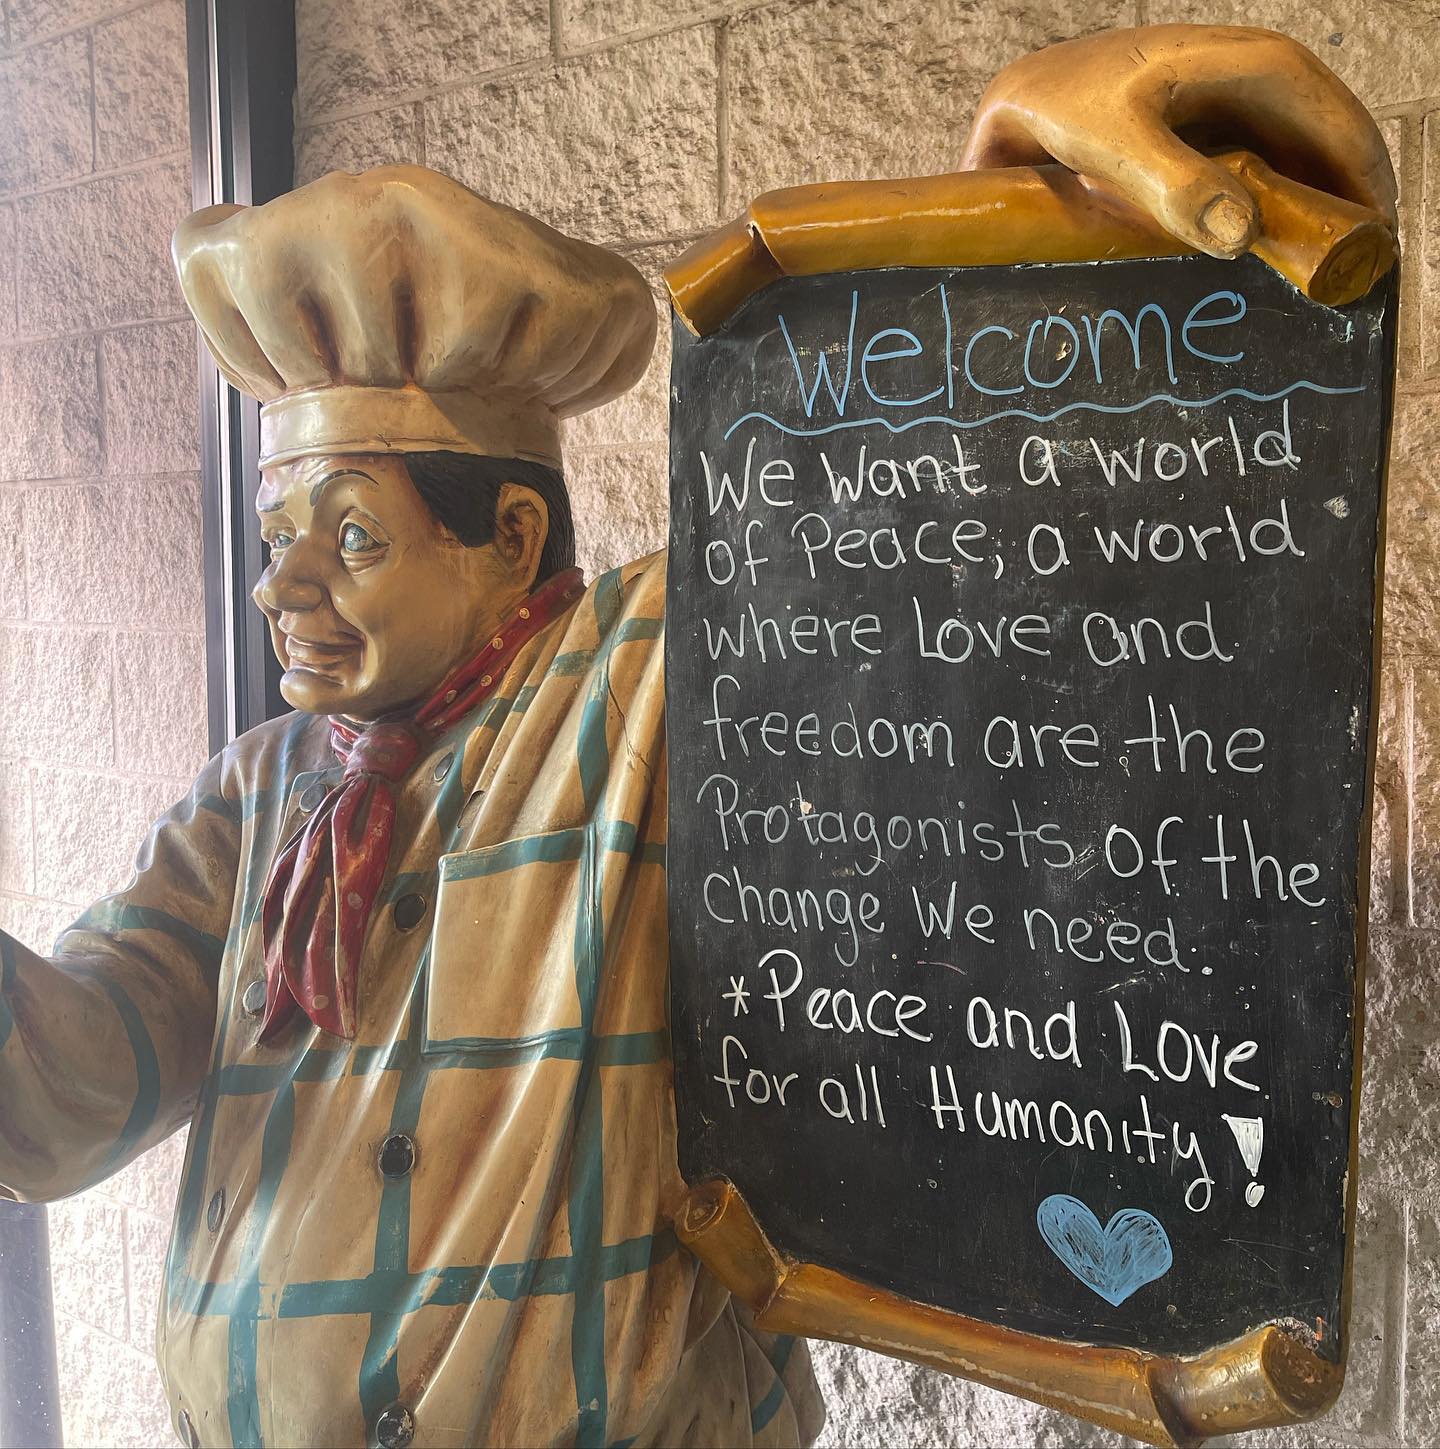 Welcome
We want a world
of Peace, a world
where Love and
freedom are the
Protagonists of the
change We need.
*Peace and Love
for all Humanity!